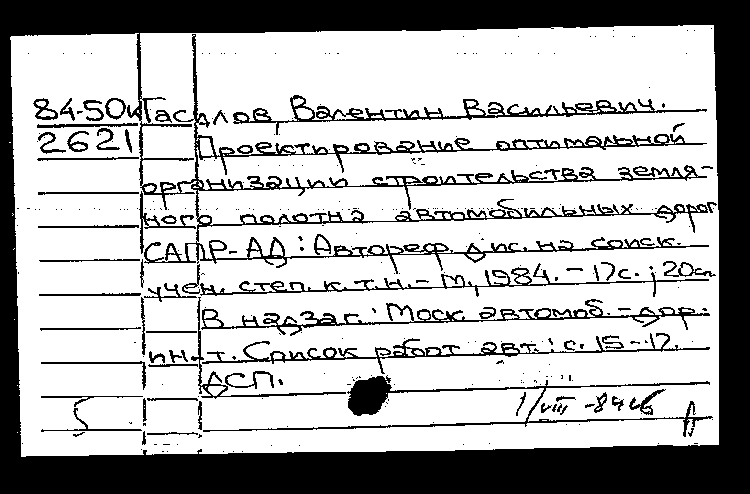 84-50к Гасилов, Валентин Васильевич.
2621 Проектирование оптимальной
организации строительства земля-
ного полотна автомобильных дорог
САПР-АД: Автореф. дис. на соиск.
учен. степ. к.т.н. - М., 1984. - 17с.; 20см
В надзаг.: Моск. автомоб.-дор.
ин-т. Список работ авт.: с. 15-17.
ДСП.
5 1/VIII -84